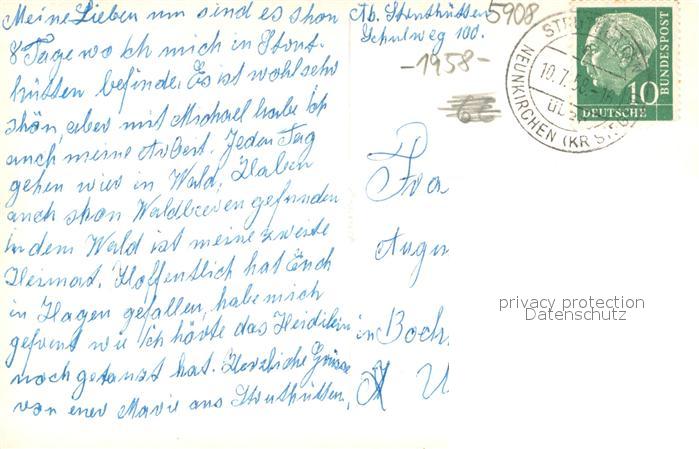 Meine Lieben nun sind es shon
8 Tage wo ich mich in Strut-
hütten befinde. Es ist wohl sehr
shön, aber mit Michael habe Ich
auch meine Arbert. Jeden Tag
gehen wier in Wald, Haben
auch shon Waldbeeren gefunden
in dem Wald ist meine zweite
Heimat. Hoffentlich hat Euch
in Hagen gefallen, habe mich
gefreut wie Ich hörte das Heidilein
noch getanzt hat. Herzliche Grüsse
von euer Marie aus Struthütten.
Ab. Struthütten
Schulweg 100.
5908
-1958-
66
NEUNKIRCHEN (KR
10.7.58
DEUTSCHE
BUNDESPOST
10
Fra
Augu
in Boch
privacy protection
Datenschutz